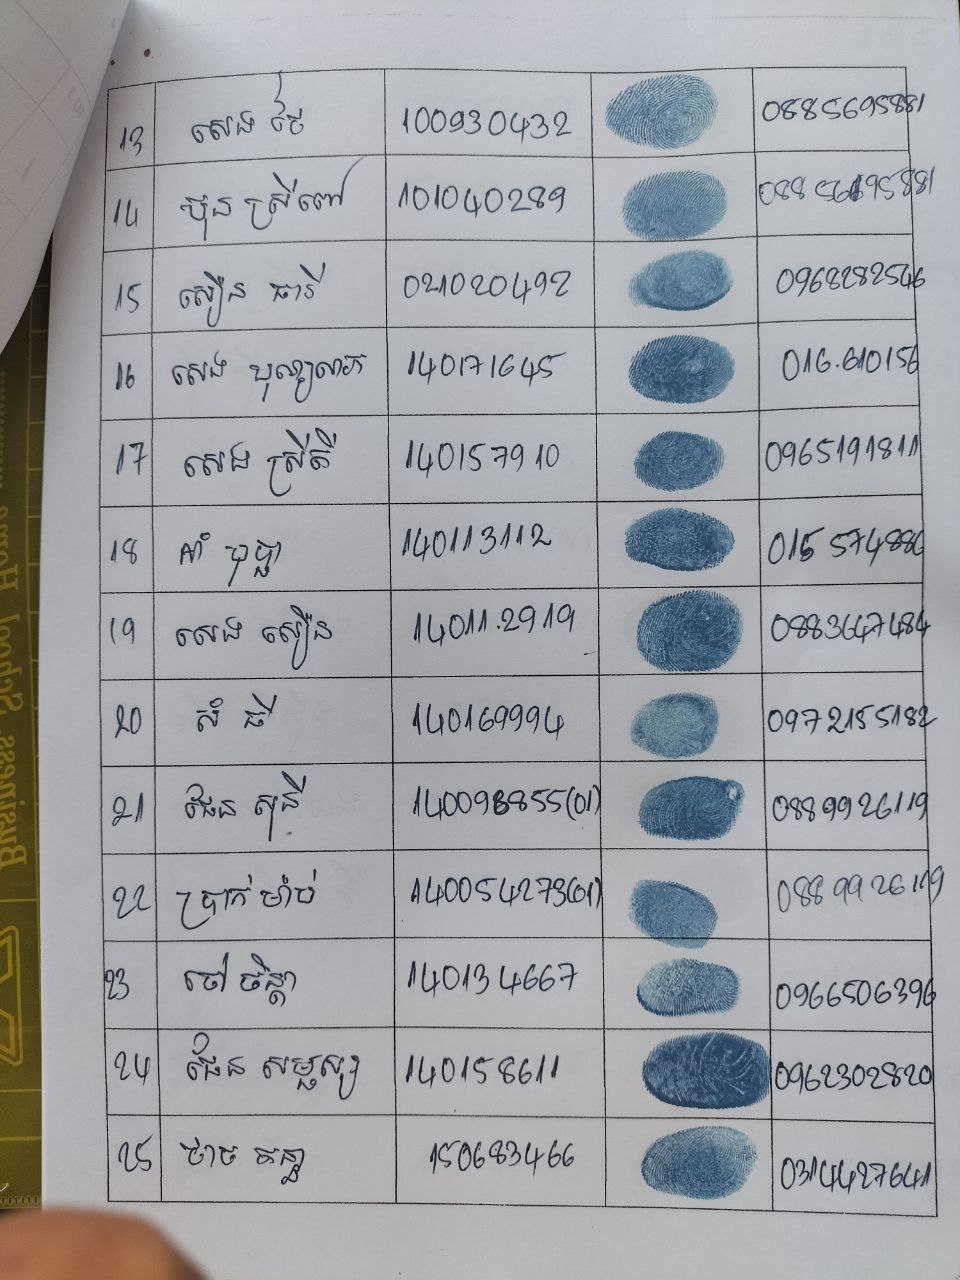 13 សេង ថៃ 100930432 0885695881
14 ប៊ុន ស្រីពៅ 101040289 0885695881
15 សឿន ធារី 021020492 0962282546
16 សេង បុណ្យលាភ 140171645 016.610156
17 សេង ស្រីតី 140157910 0965191811
18 អាំ បុប្ផា 140113112 015 574886
19 សេង សឿន 14011.2919 0883647484
20 សំ ធី 140169994 0972155182
21 ផែន សុធី 140098855(01) 0889926119
22 ប្រាក់ ម៉ាប់ 140054273(01) 0889926119
23 ចៅ ចិន្តា 140134667 0966506396
24 ផែន សម្ផស្ស 140158611 0962302820
25 ថាច គន្ធា 150683466 0314427641
Business, School, Home